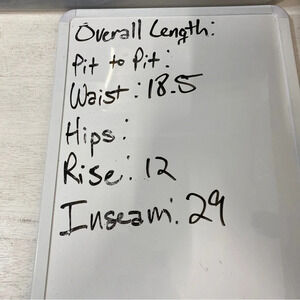 Overall Length:
Pit to Pit:
Waist: 18.5
Hips:
Rise: 12
Inseam: 29